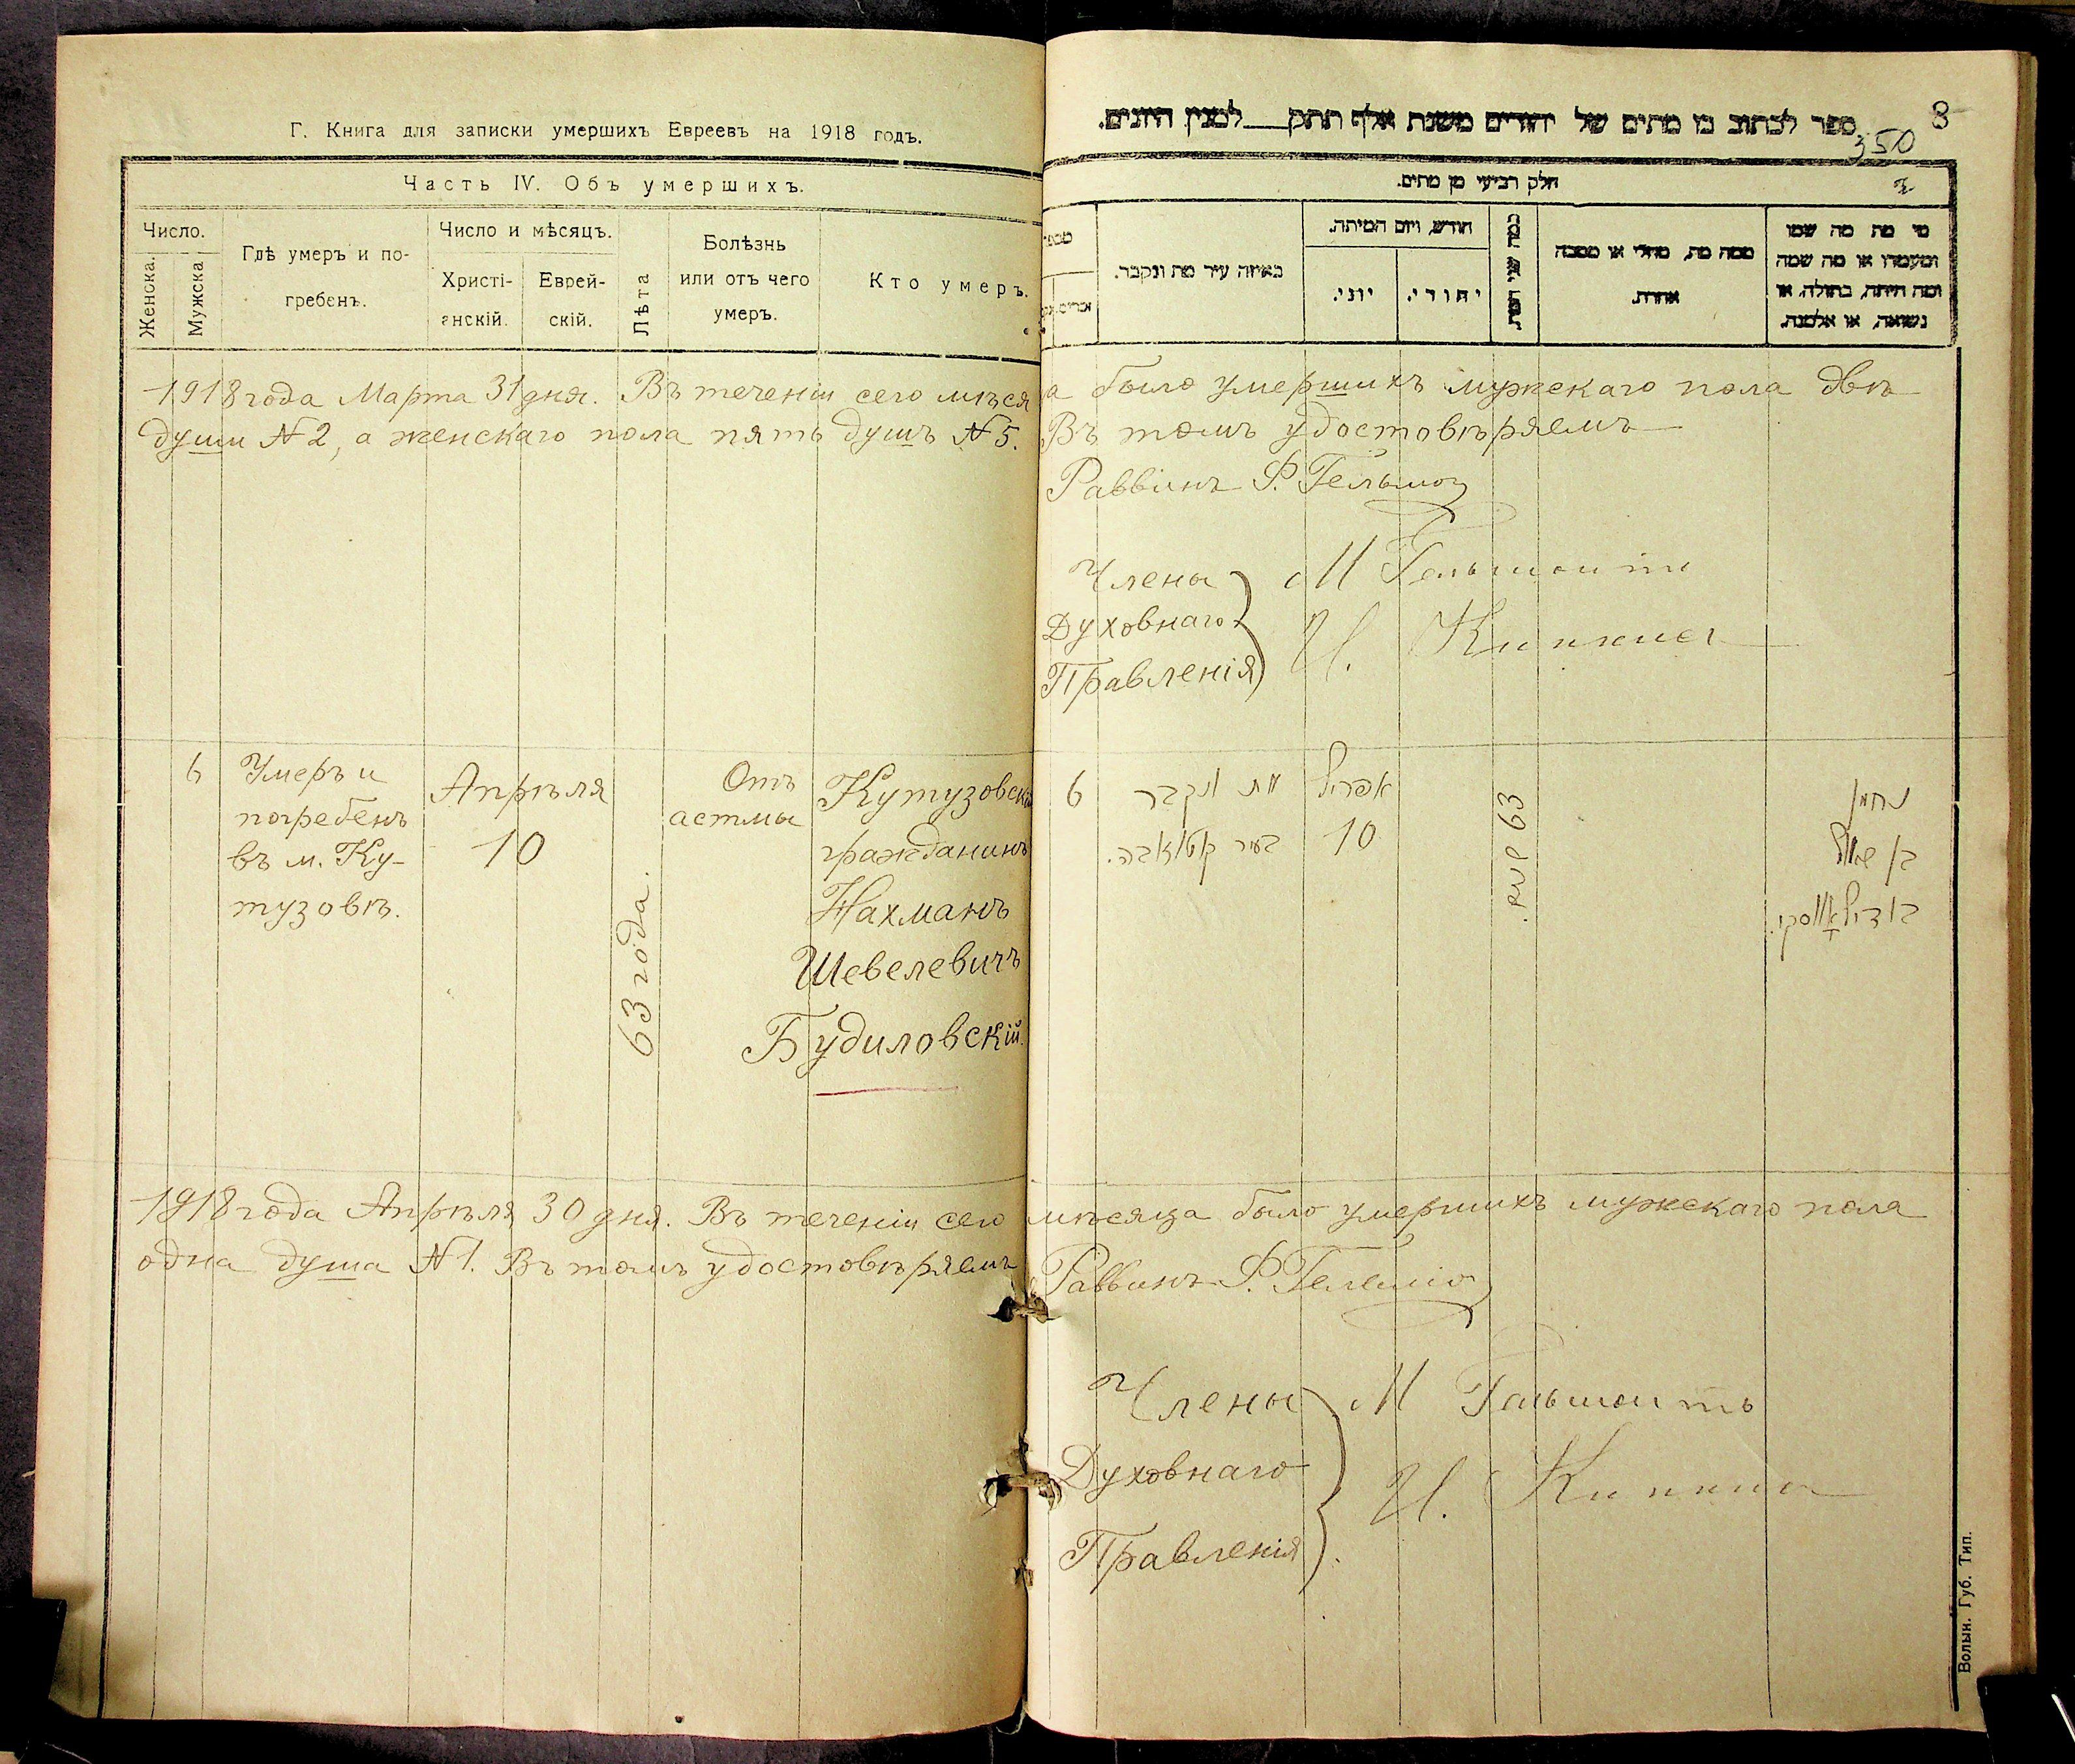 Г. Книга для записки умершихъ Евреевъ на 1918 годъ.
Часть IV. Объ умершихъ.
Число.
Женска.
Мужска
Гдѣ умеръ и по-
гребенъ.
Число и мѣсяцъ.
Христі-
анскій.
Еврей-
скій.
Лѣта
Болѣзнь
или отъ чего
умеръ.
Кто умеръ.
1918 года Марта 31 дня. Въ теченіи сего мѣся
души № 2, а женскаго пола пять душъ № 5.
6
Умеръ и
погребенъ
въ м. Ку-
тузовѣ.
Апрѣля
10
63 года.
Отъ
астмы
Кутузовскій
гражданинъ
Нахманъ
Шевелевичъ
Будиловскій.
1918 года Апрѣля 30 дня. Въ теченіи сего
одна душа № 1. Въ томъ удостовѣряемъ
8
350
ספר לכתוב בו מתים של יהודים משנת אלף תתק למנין היונים.
חלק רביעי מן מתים.
מי מת מה שמו
ומעמדו או מה שמה
ומה היתה, בתולה, או
נשואה, או אלמנה.
ממה מת, מחלי או מסבה
אחרת.
כמה שני המת.
חודש, ויום המיתה.
יהודי.
יוני.
באיזה עיר מת ונקבר.
а было умершихъ мужскаго пола двѣ
Въ томъ удостовѣряемъ
Раввинъ Ф.
Члены
Духовнаго
Правленія
М
И.
6
מת ונקבר
בעיר
אפריל
10
63 שנה.
נחמן
בן
мѣсяца было умершихъ мужскаго пола
Раввинъ Ф.
Члены
Духовнаго
Правленія
М
И.
Волын. Губ. Тип.